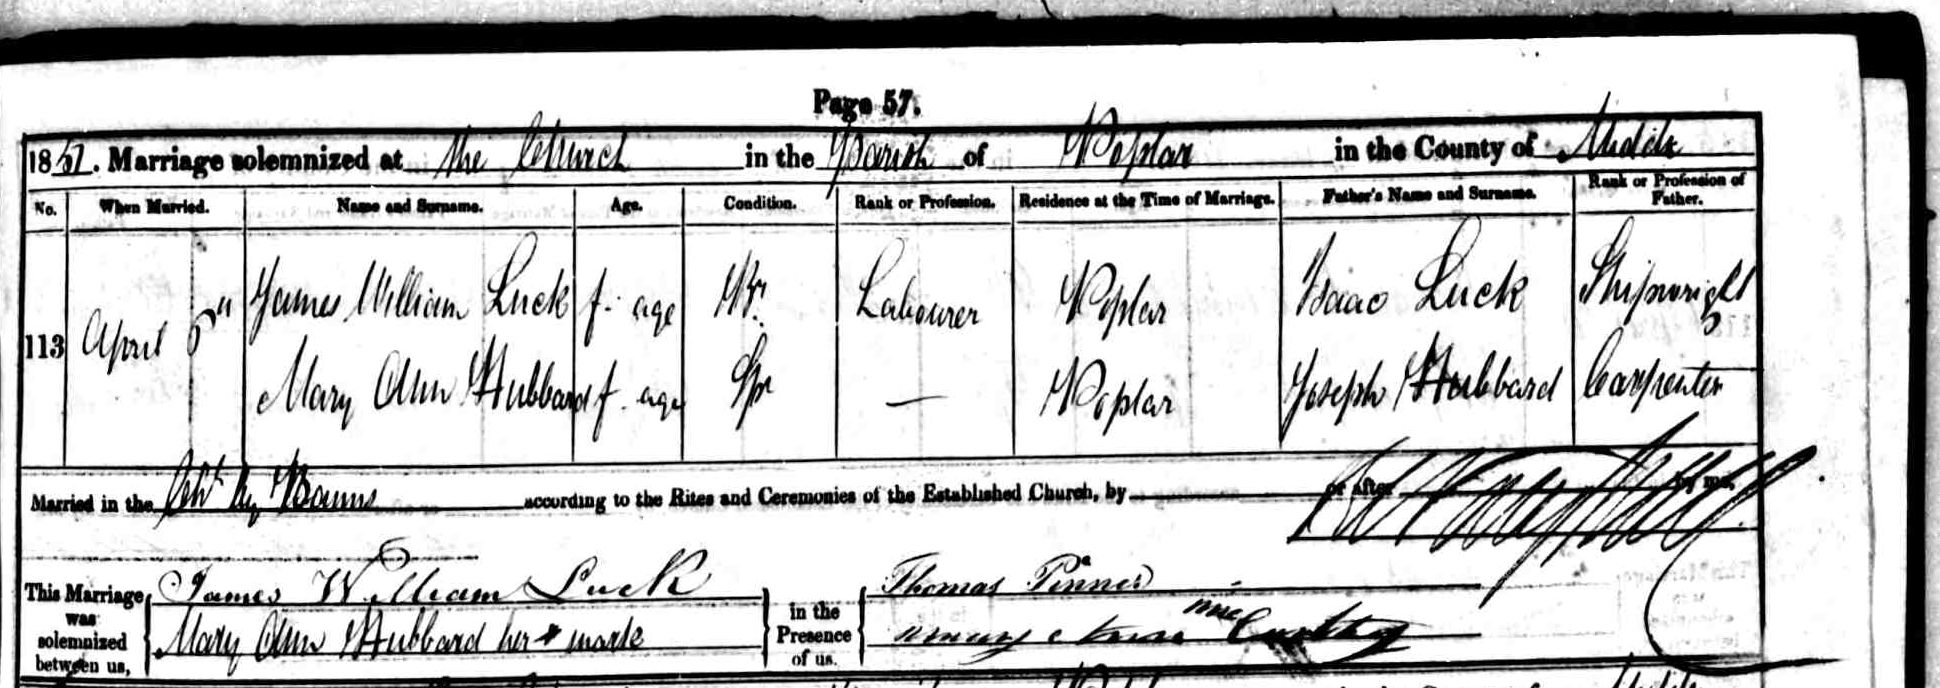 Page 57.
1851. Marriage solemnized at the Church in the Parish of Poplar in the County of Middx
No. When Married. Name and Surname. Age. Condition. Rank or Profession. Residence at the Time of Marriage. Father's Name and Surname. Rank or Profession of Father.
113 April 6" James William Luck f. age Br. Labourer Poplar Isaac Luck Shipwright
Mary Ann Hubbard f. age Spr — Poplar Joseph Hubbard Carpenter
Married in the Chh by Banns according to the Rites and Ceremonies of the Established Church, by or after by me,
This Marriage was solemnized between us, James William Luck in the Presence of us. Thomas Pinner
Mary Ann Hubbard her x mark